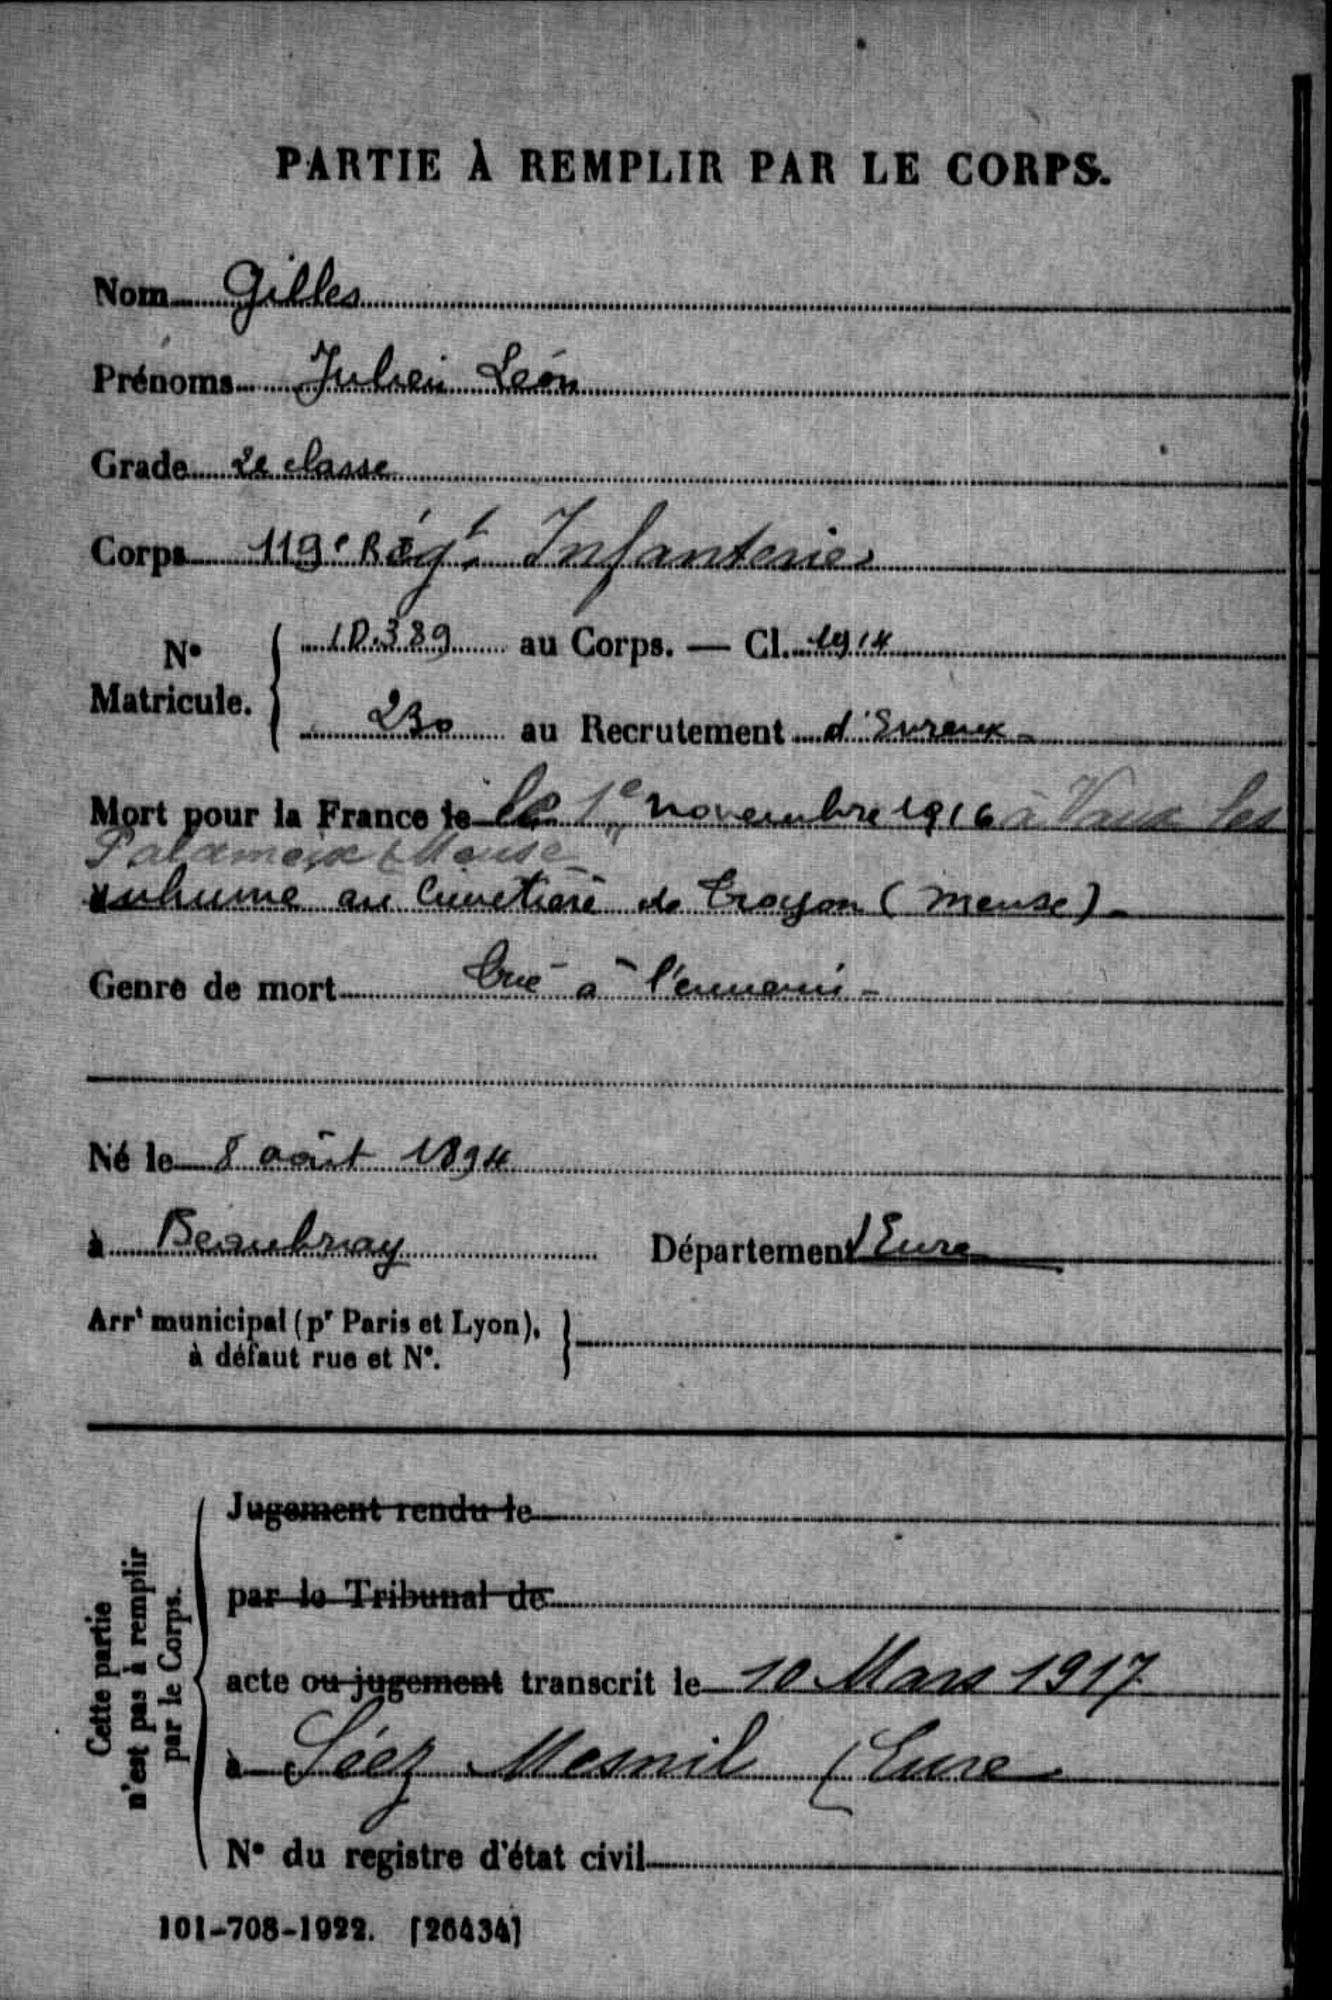 PARTIE À REMPLIR PAR LE CORPS.
Nom Gilles
Prénoms Julien Léon
Grade 2e classe
Corps 119e Régt Infanterie
No Matricule. 10.389 au Corps. — Cl. 1914
230 au Recrutement d'Evreux -
Mort pour la France le le 1e novembre 1916 à Vaux les
Palameix (Meuse
inhumé au Cimetière de Troyon (Meuse) -
Genre de mort Tué à l'ennemi -
Né le 8 août 1894
à Beaubray Département Eure
Arrt municipal (pr Paris et Lyon),
à défaut rue et No.
Cette partie
n'est pas à remplir
par le Corps.
Jugement rendu le
par le Tribunal de
acte ou jugement transcrit le 10 Mars 1917
à Séez Mesnil (Eure
No du registre d'état civil
101-708-1922. [26434]